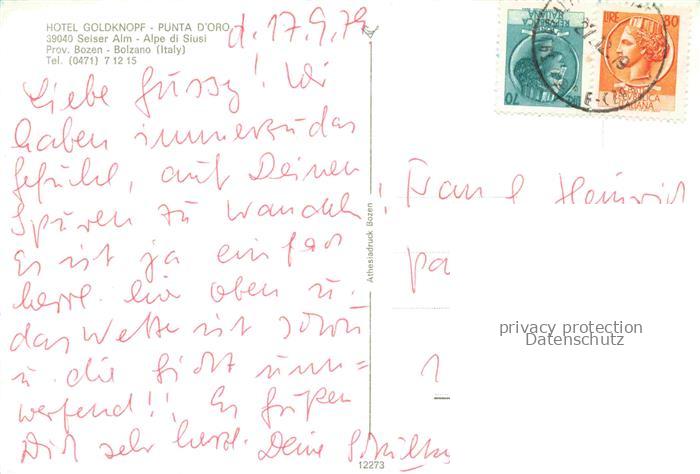 HOTEL GOLDKNOPF - PUNTA D'ORO
39040 Seiser Alm - Alpe di Siusi
Prov. Bozen - Bolzano (Italy)
Tel. (0471) 7 12 15
d. 17.9.79
Liebe Gussy! Wir
haben immerzu das
Gefühl, auf Deinen
Spuren zu wandeln!
Es ist ja einfach
herrl. hier oben u.
das Wetter ist schön
u. die Sicht umw=
werfend!! Es grüßen
Dich sehr herzl. Deine
Athesiadruck Bozen
12273
LIRE 80
REPUBBLICA
ITALIANA
70
Frau E Heinrich
pa
1
privacy protection
Datenschutz